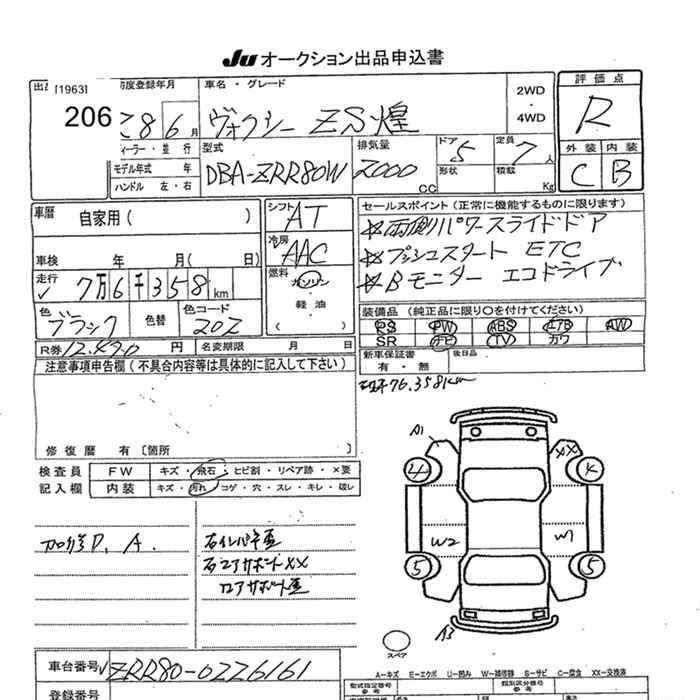 Ju オークション出品申込書
[1963]
206
年度登録年月
28 6月
ディーラー・並行
モデル年式 年
ハンドル 左・右
車名・グレード
ヴォクシー ZS煌
2WD
・
4WD
評価点
R
外装 内装
C B
型式
DBA-ZRR80W
排気量
2000 CC
ドア
5
形状
定員
7人
積載
Kg
車歴 自家用( )
車検 年 月( 日)
走行 7万6千358km
色 ブラック 色替 色コード 202
R券 12,490円 名変期限 月 日
シフト AT
冷房 AAC
燃料
ガソリン
・
軽油
・
( )
セールスポイント(正常に機能するものに限ります)
☆両側パワースライドドア
☆プッシュスタート ETC
☆Bモニター エコドライブ
装備品(純正品に限り○を付けてください)
PS PW ABS エアB AW
SR ナビ TV カワ
新車保証書
有・無
後日品
76.358km
注意事項申告欄(不具合内容等は具体的に記入して下さい)
修復歴 有〔箇所 〕
検査員
記入欄
FW キズ・飛石・ヒビ割・リペア跡・×要
内装 キズ・汚れ・コゲ・穴・スレ・キレ・破レ
P、A.
右インパネ歪
右コアサポートXX
ロアサポート歪
A1
XX
4
W2
W1
5 5
A3
スペア
A-キズ E-エクボ U-凹み W-補修跡 S-サビ C-腐食 XX-交換済
車台番号 ZRR80-0226161
登録番号
型式指定番号
参考
類別区分番号
参考